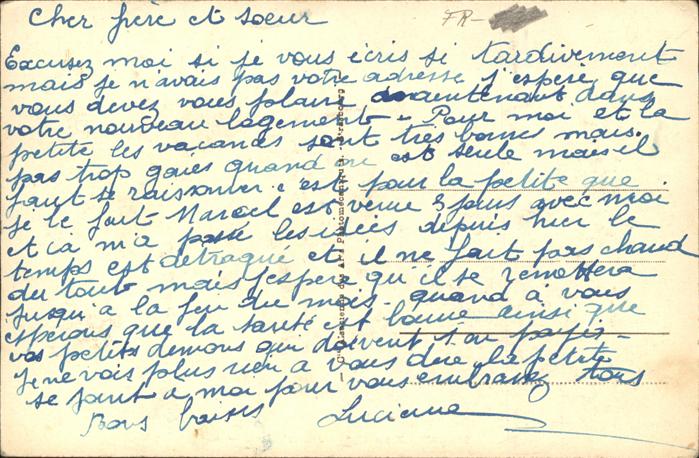 Cher frère et soeur
FR-
Excusez moi si je vous écris si tardivement
mais je n'avais pas votre adresse j'espère que
vous devez vous plaire maintenant dans
votre nouveau logement - Pour moi et la
petite les vacances sont très bonnes mais
pas trop gaies quand on est seule mais il
faut se raisonner c'est pour la petite que
je le fait Marcel est venue 8 jours avec moi
et ca m'a passé les idées depuis hier le
temps est détraqué et il ne fait pas chaud
du tout mais j'espère qu'il se remettera
jusqu'a la fin du mois - quand à vous
esperons que la santé est bonne ainsi que
vos petits demons qui doivent
Je ne vois plus rien a vous dire la petite
se joint a moi pour vous embrassez tous
Bons baisers Lucienne